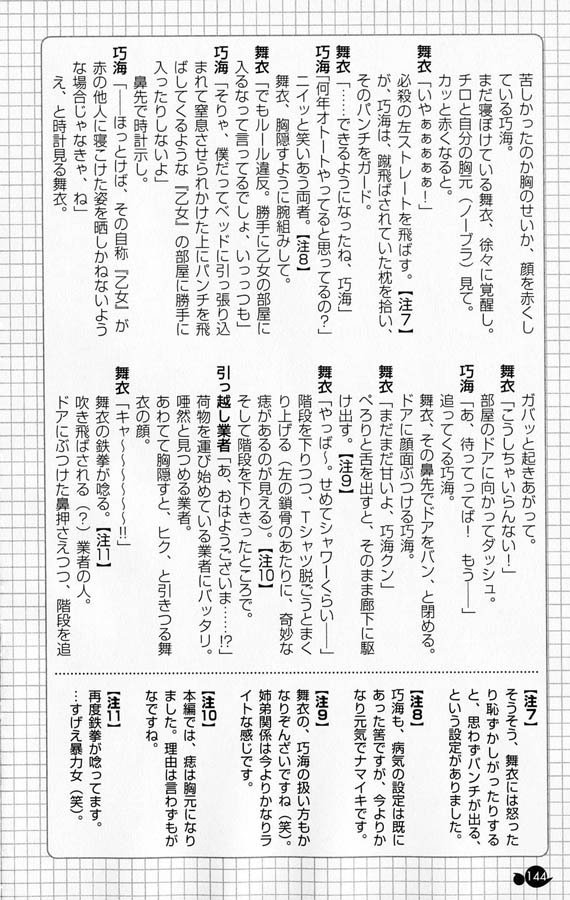 苦しかったのか胸のせいか、顔を赤くし
ている巧海。
まだ寝ぼけている舞衣、徐々に覚醒し。
チロと自分の胸元（ノーブラ）見て。
カッと赤くなると。
舞衣「いやぁぁぁぁぁ！」
必殺の左ストレートを飛ばす。【注７】
が、巧海は、蹴飛ばされていた枕を拾い、
そのパンチをガード。
舞衣「……できるようになったね、巧海」
巧海「何年オトートやってると思ってるの？」
ニイッと笑いあう両者。【注８】
舞衣、胸隠すように腕組みして。
舞衣「でもルール違反。勝手に乙女の部屋に
入るなって言ってるでしょ、いっっつも」
巧海「そりゃ、僕だってベッドに引っ張り込
まれて窒息させられかけた上にパンチを飛
ばしてくるような『乙女』の部屋に勝手に
入ったりしないよ」
鼻先で時計示し。
巧海「――ほっとけば、その自称『乙女』が
赤の他人に寝こけた姿を晒しかねないよう
な場合じゃなきゃ、ね」
え、と時計見る舞衣。
ガバッと起きあがって。
舞衣「こうしちゃいらんない！」
部屋のドアに向かってダッシュ。
巧海「あ、待ってってば！　もう――」
追ってくる巧海。
舞衣、その鼻先でドアをバン、と閉める。
ドアに顔面ぶつける巧海。
舞衣「まだまだ甘いよ、巧海クン」
ぺろりと舌を出すと、そのまま廊下に駆
け出す。【注９】
舞衣「やっば～。せめてシャワーくらい――」
階段を下りつつ、Ｔシャツ脱ごうとまく
り上げる（左の鎖骨のあたりに、奇妙な
痣があるのが見える）。【注10】
そして階段を下りきったところで。
引っ越し業者「あ、おはようございま……!?」
荷物を運び始めている業者にバッタリ。
唖然と見つめる業者。
あわてて胸隠すと、ヒク、と引きつる舞
衣の顔。
舞衣「キャ～～～～～～!!」
舞衣の鉄拳が唸る。【注11】
吹き飛ばされる（？）業者の人。
ドアにぶつけた鼻押さえつつ、階段を追
【注７】
そうそう、舞衣には怒った
り恥ずかしがったりする
と、思わずパンチが出る、
という設定がありました。
【注８】
巧海も、病気の設定は既に
あった筈ですが、今よりか
なり元気でナマイキです。
【注９】
舞衣の、巧海の扱い方もか
なりぞんざいですね（笑）。
姉弟関係は今よりかなりラ
イトな感じです。
【注10】
本編では、痣は胸元になり
ました。理由は言わずもが
なですね。
【注11】
再度鉄拳が唸ってます。
…すげえ暴力女（笑）。
144